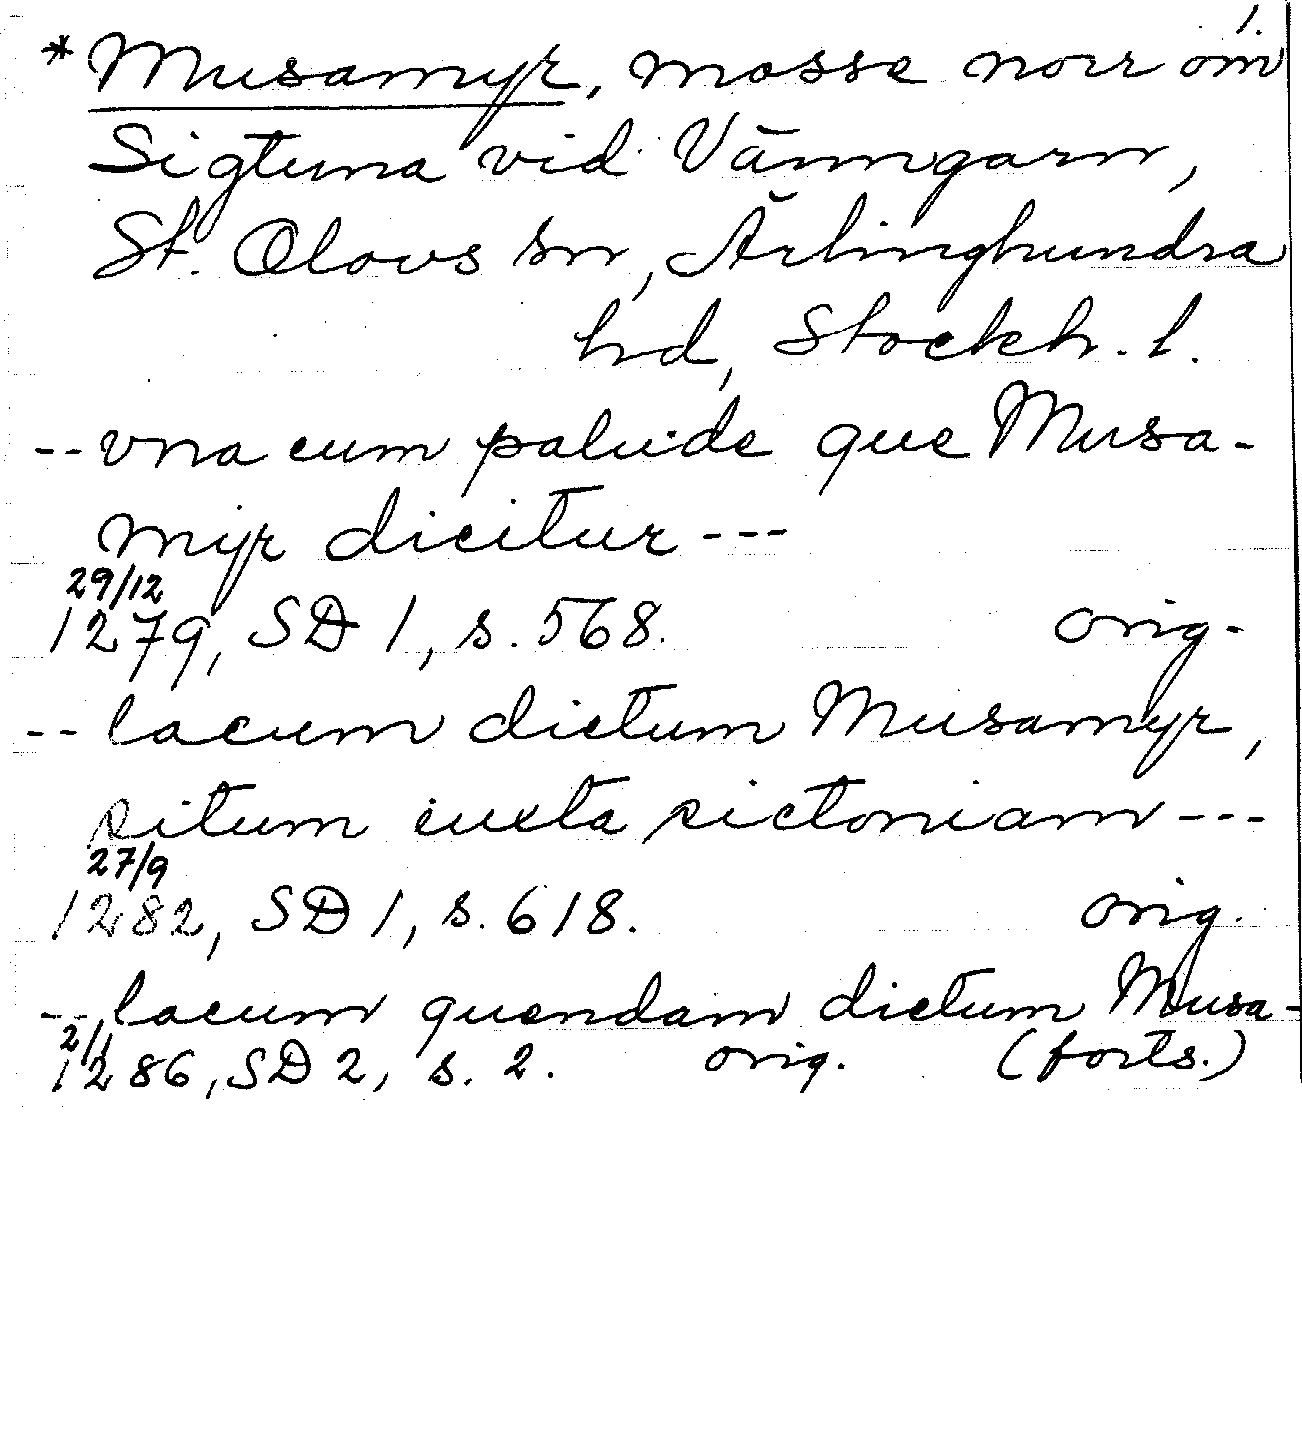 1.
*Musamyr, mosse norr om
Sigtuna vid Vänngarn,
St. Olovs sn, Ärlinghundra
hd, Stockh. l.
-- vna cum palude que Musa-
myr dicitur ---
29/12
1279, SD 1, s. 568. orig.
-- lacum dictum Musamyr,
situm iuxta sictoniam ---
27/9
1282, SD 1, s. 618. orig.
-- lacum quendam dictum Musa-
2/1
1286, SD 2, s. 2. orig. (forts.)